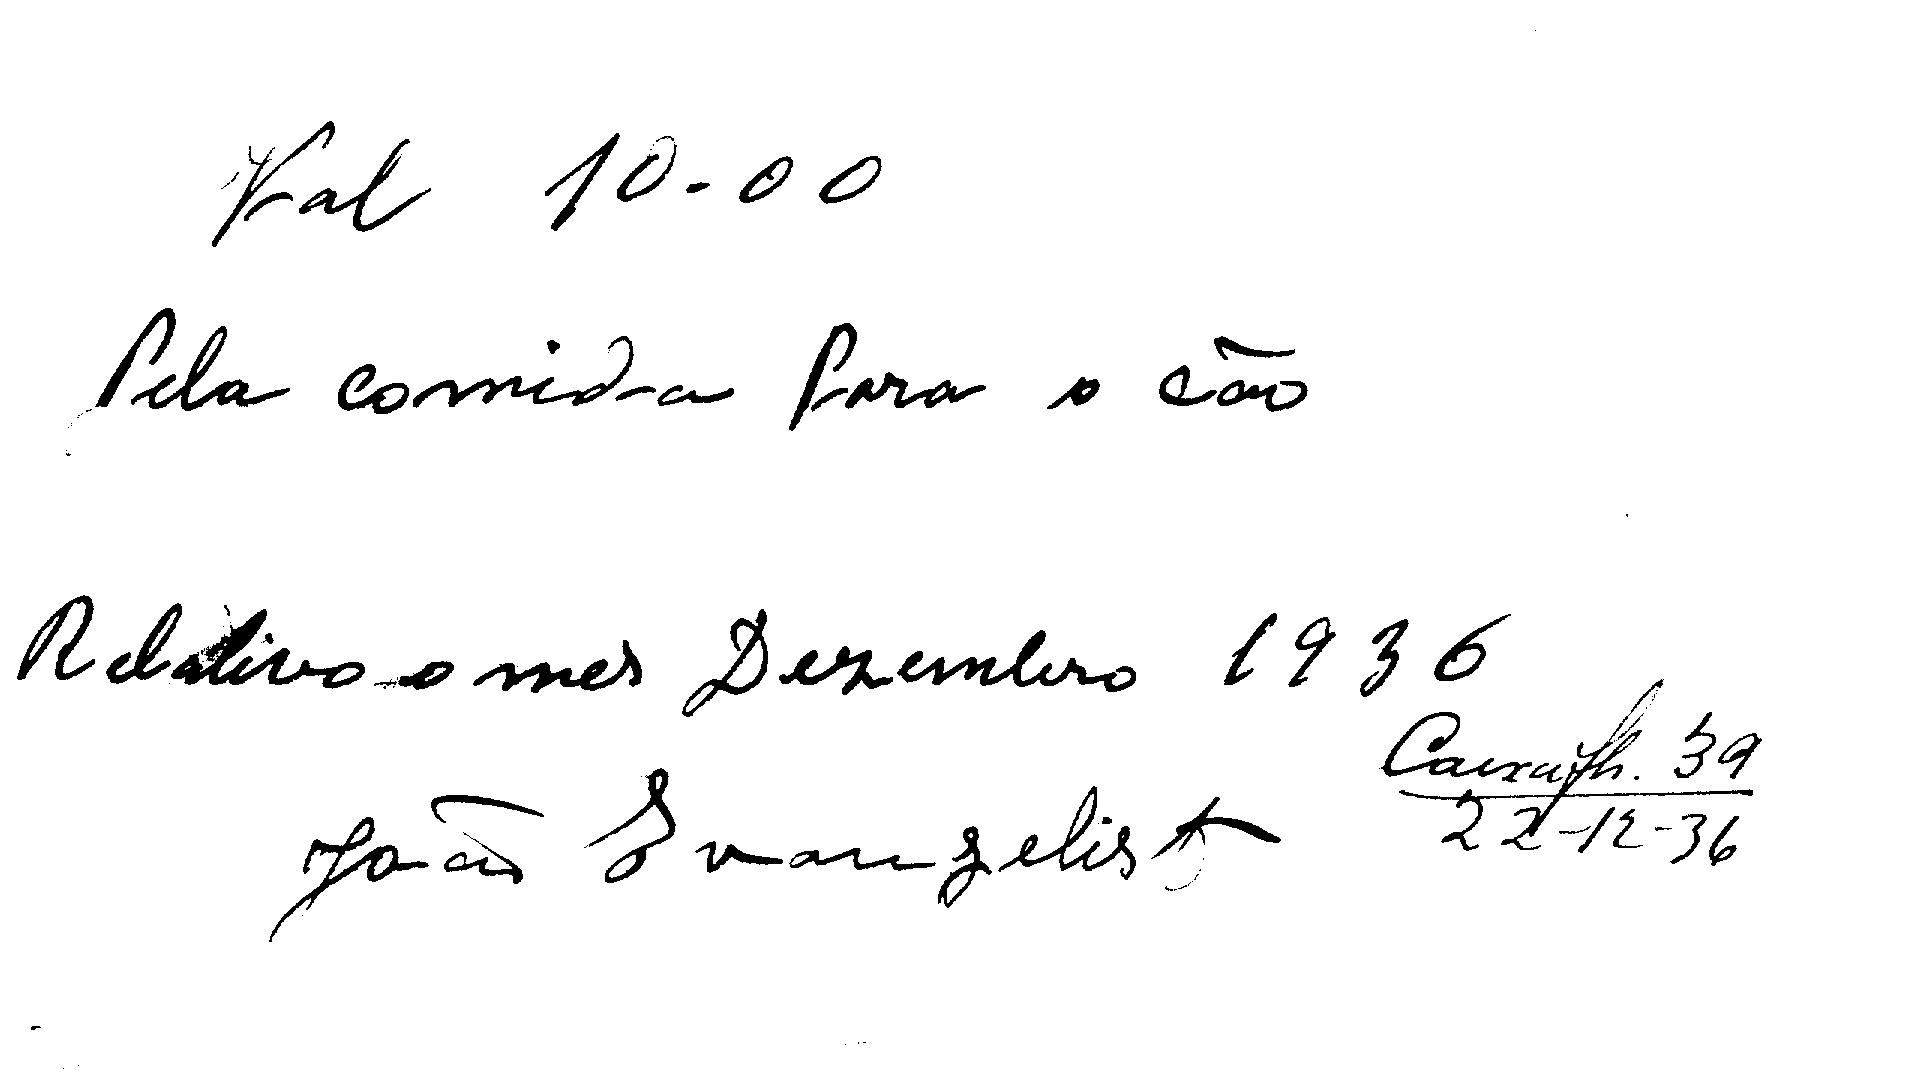 Val 10-00
Pela comida Para o cão
Relativo o mes Dezembro 1936
João Evangelist
Caixa fh. 39
22-12-36